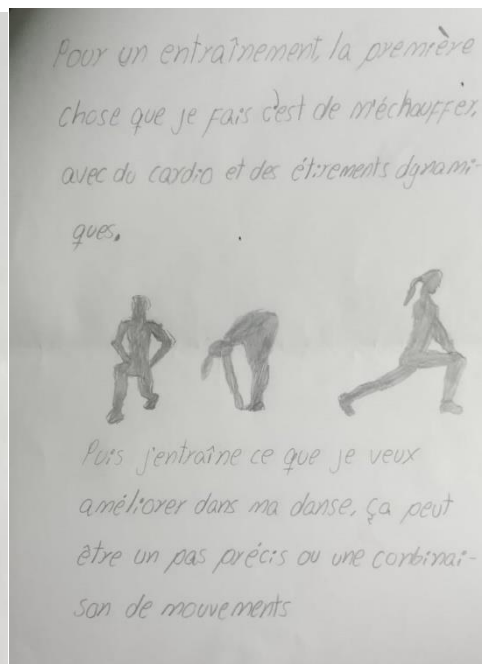 Pour un entraînement, la première
chose que je fais c'est de m'échauffer,
avec du cardio et des étirements dynami-
ques.
Puis j'entraîne ce que je veux
améliorer dans ma danse, ça peut
être un pas précis ou une conbinai-
son de mouvements